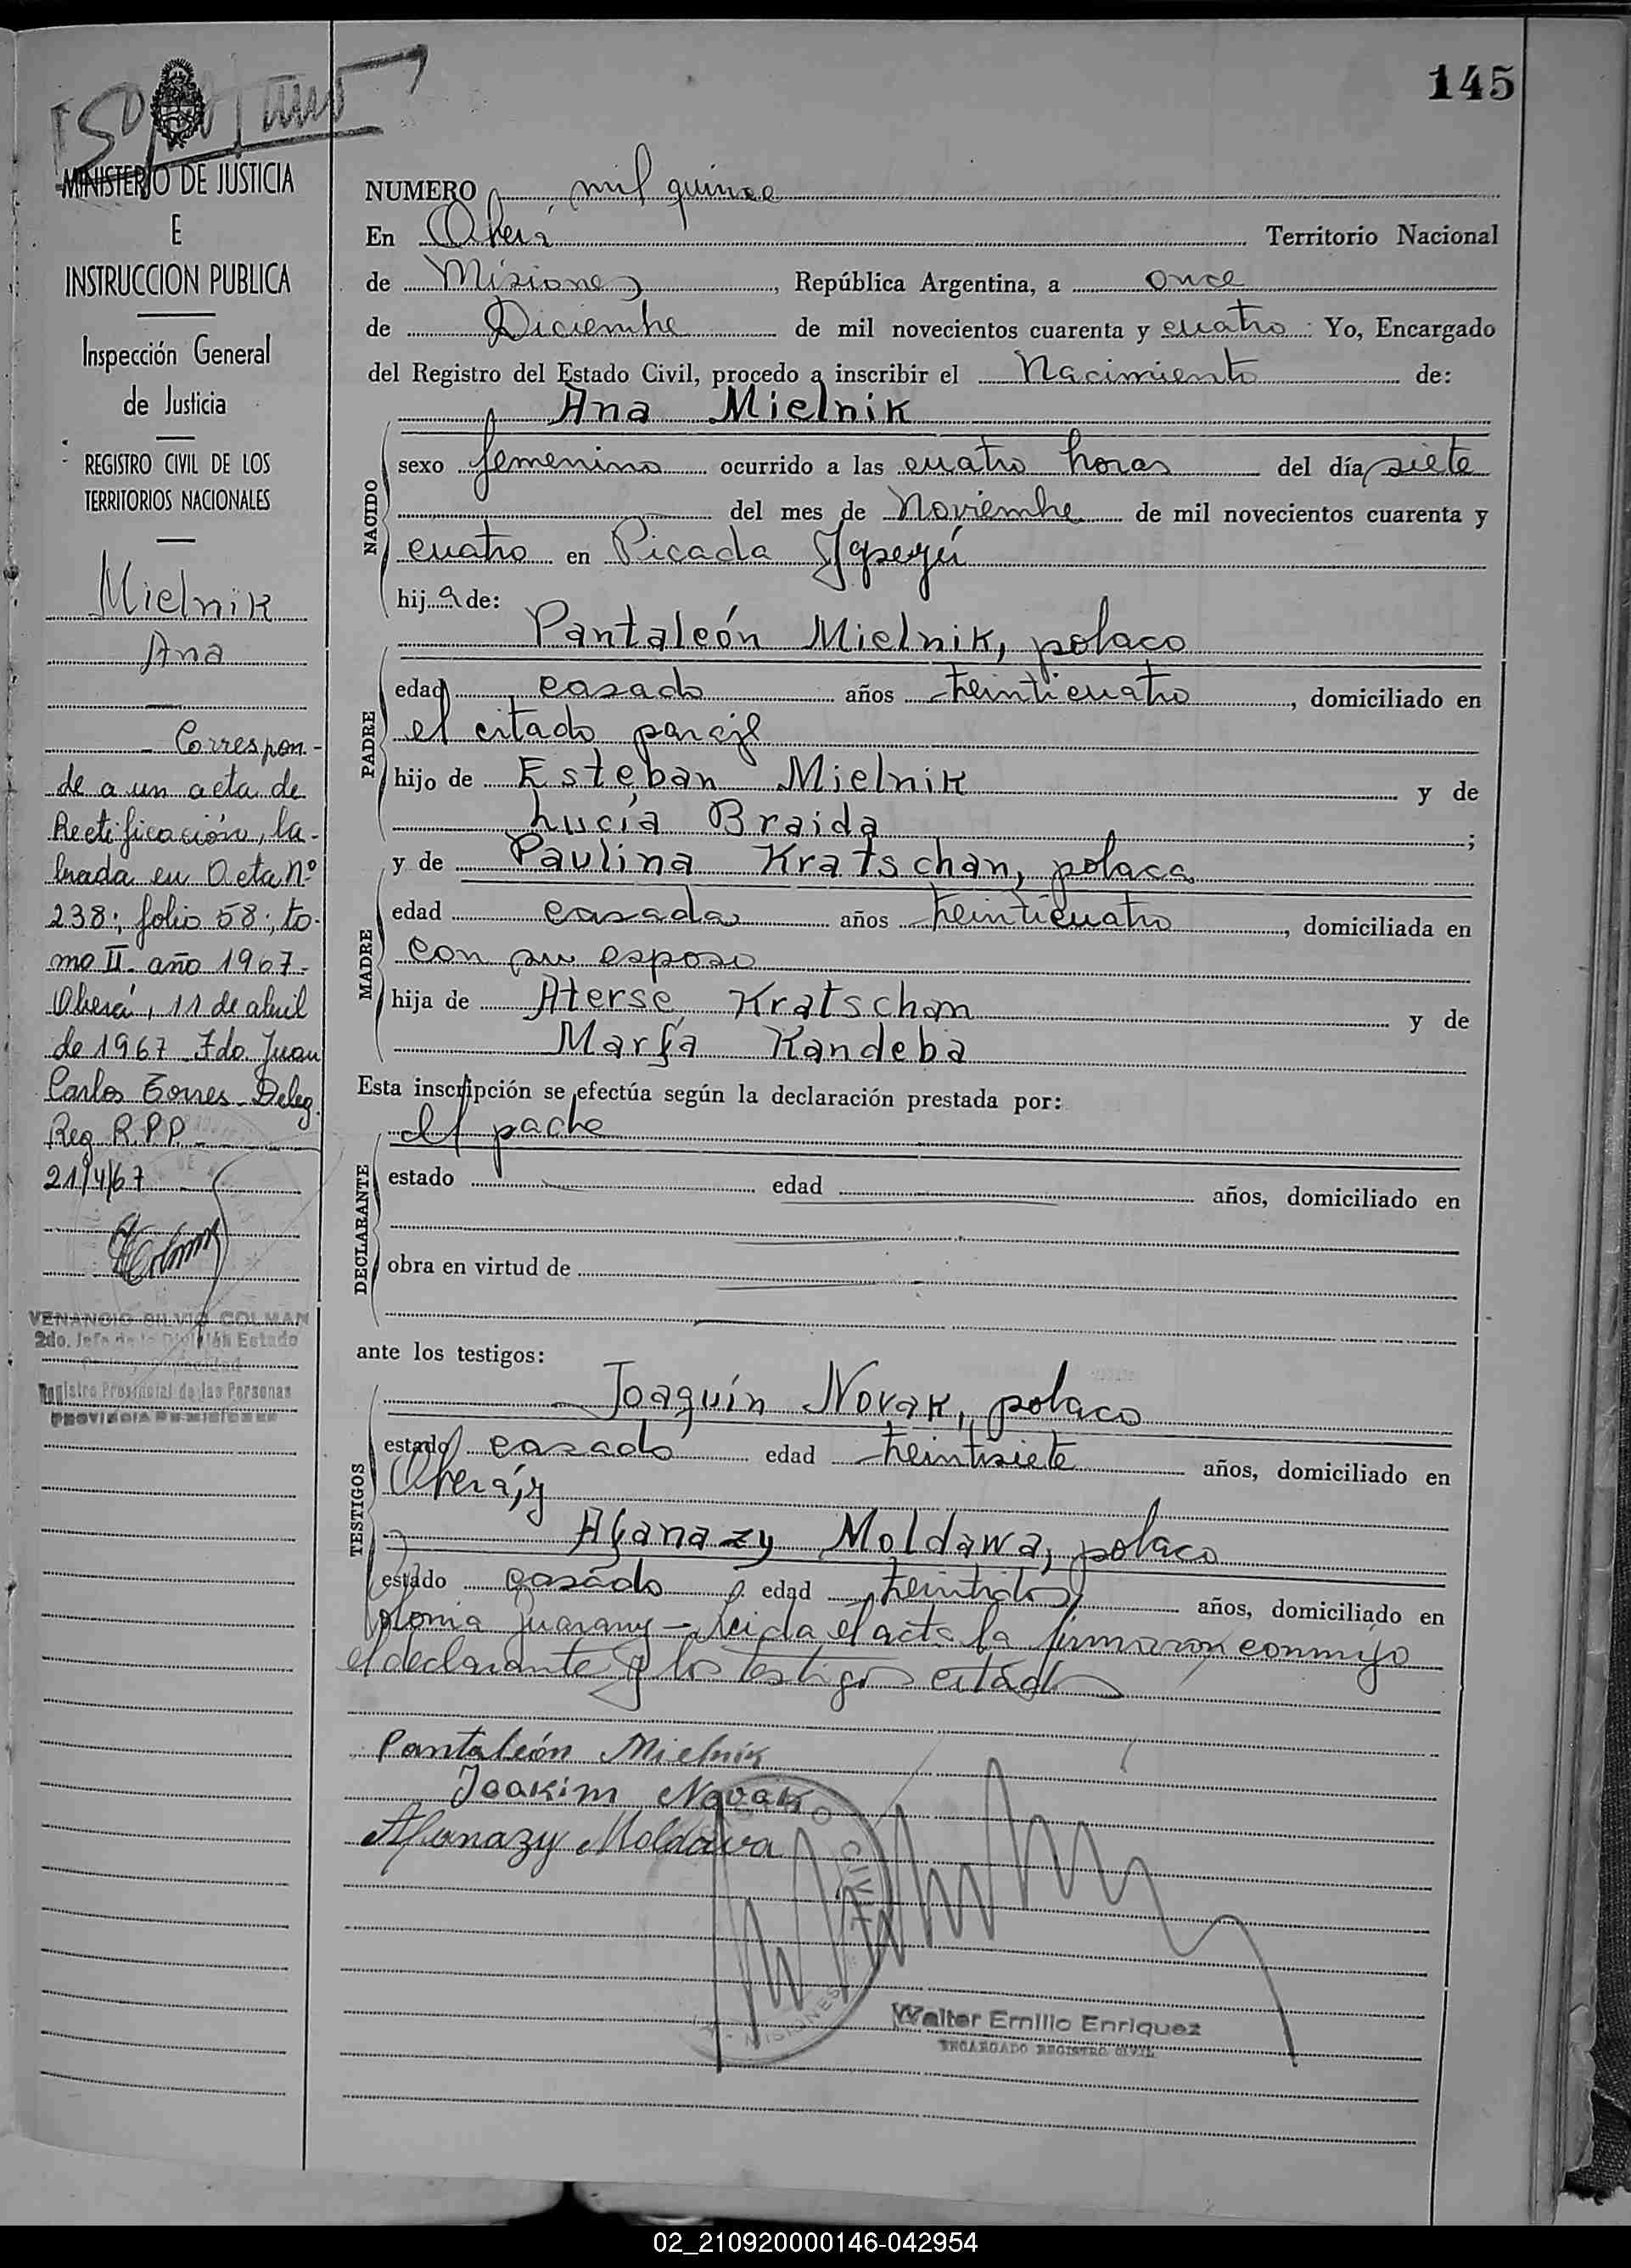 145
MINISTERIO DE JUSTICIA
E
INSTRUCCION PUBLICA
Inspección General
de Justicia
REGISTRO CIVIL DE LOS
TERRITORIOS NACIONALES
Mielnik
Ana
Correspon-
de a un acta de
Rectificación, la-
brada en Acta Nº
238; folio 58; to-
mo II año 1967-
Oberá, 11 de abril
de 1967 Fdo. Juan
Carlos Torres - Deleg.
Reg. R.P.P.
21/4/67
VENANCIO SILVIO COLMAN
2do. Jefe de la División Estado
Registro Provincial de las Personas
PROVINCIA DE MISIONES
NUMERO mil quince
En Oberá Territorio Nacional
de Misiones, República Argentina, a once
de Diciembre de mil novecientos cuarenta y cuatro: Yo, Encargado
del Registro del Estado Civil, procedo a inscribir el Nacimiento de:
Ana Mielnik
NACIDO
sexo femenino ocurrido a las cuatro horas del día siete
del mes de Noviembre de mil novecientos cuarenta y
cuatro en Picada
hija de:
Pantaleón Mielnik, polaco
PADRE
edad casado años treinticuatro, domiciliado en
el citado paraje
hijo de Esteban Mielnik y de
Lucía Braida;
y de Paulina Kratschan, polaca
MADRE
edad casada años treinticuatro, domiciliada en
con su esposo
hija de Aterse Kratschan y de
María Kandeba
Esta inscripción se efectúa según la declaración prestada por:
el padre
DECLARANTE
estado edad años, domiciliado en
obra en virtud de
ante los testigos:
Joaquín Novak, polaco
TESTIGOS
estado casado edad treintisiete años, domiciliado en
Oberá, y
Afanazy Moldawa, polaco
estado casado edad treintidos años, domiciliado en
Colonia Guarany - Leida el acta la firmaron conmigo
el declarante y los testigos citados
Pantaleón Mielnik
Joakim Novak
Afanazy Moldawa
CIVIL
MISIONES
Walter Emilio Enriquez
ENCARGADO REGISTRO CIVIL
02_210920000146-042954